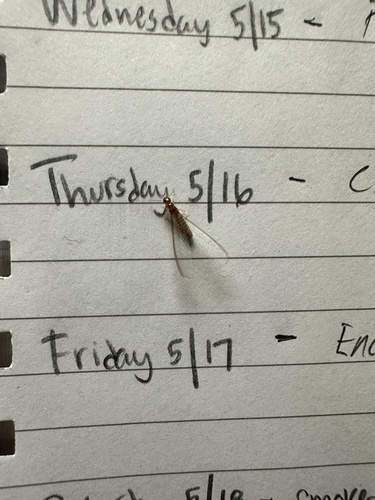 Wednesday 5/15 -
Thursday 5/16 - C
Friday 5/17 - Enc
5/18 -